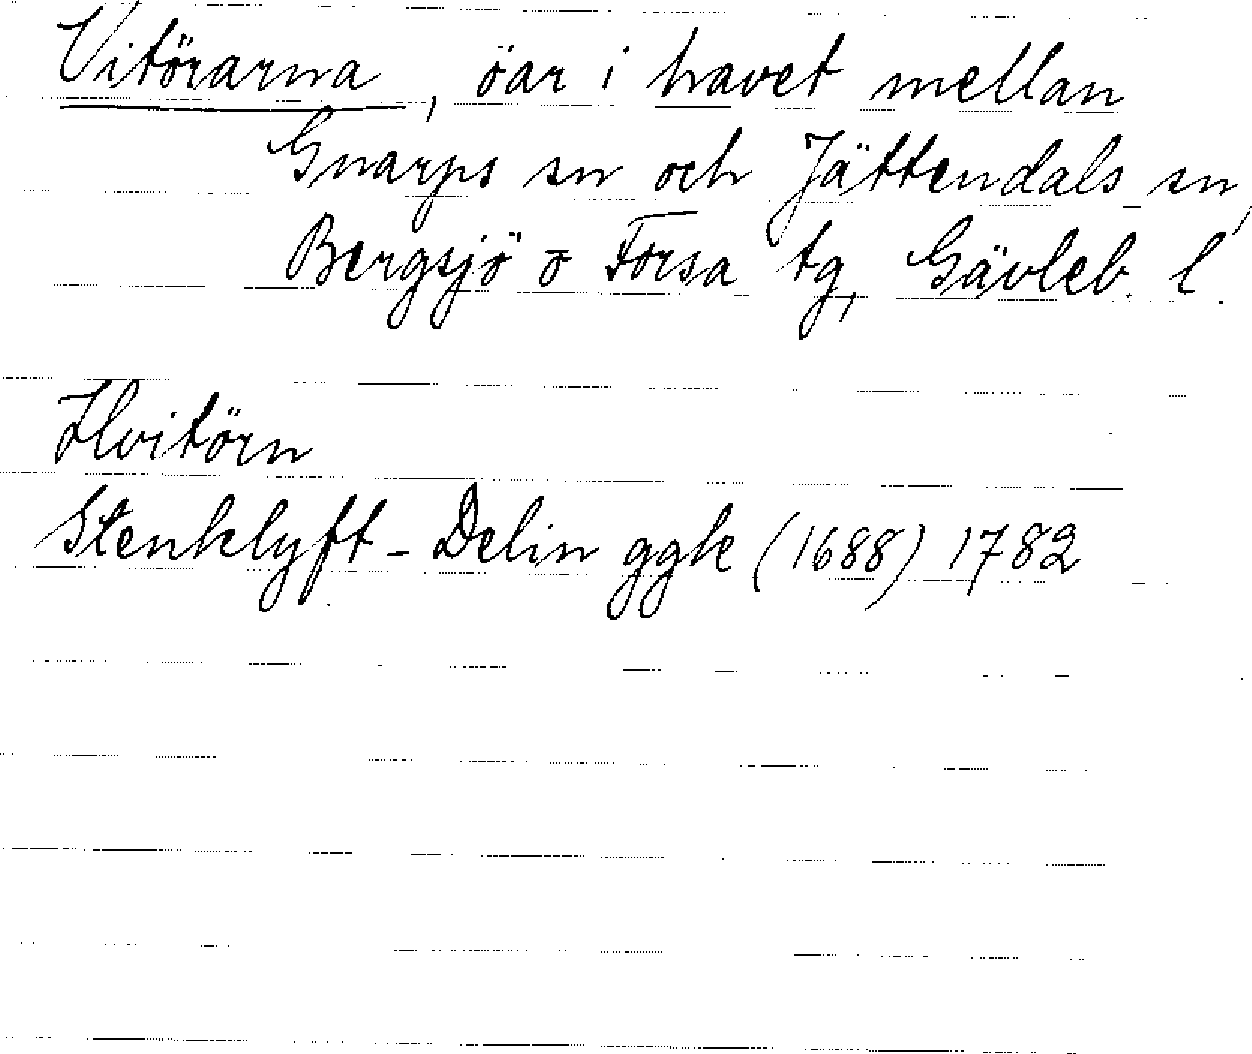 Vitörarna, öar i havet mellan
Gnarps sn och Jättendals sn,
Bergsjö o Forsa tg, Gävleb. l.
Hvitörn
Stenklyft - Delin ggk (1688) 1782